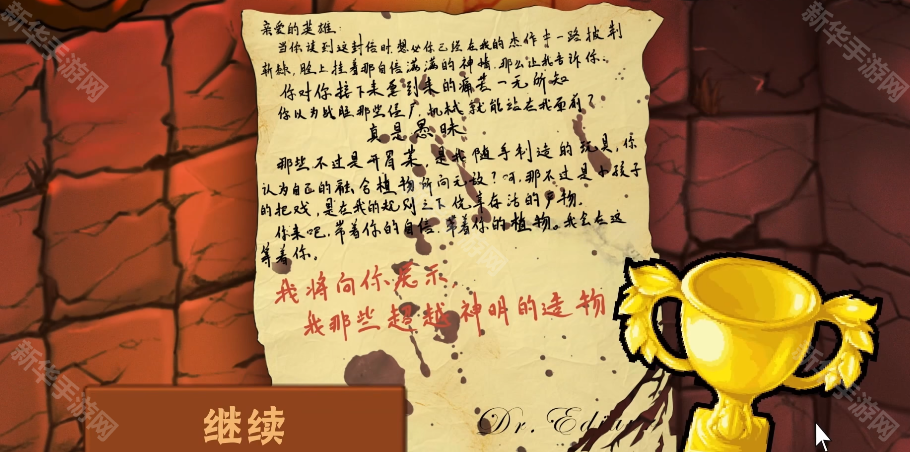 亲爱的英雄:
当你读到这封信时想必你已经在我的杰作中一路披荆
斩棘,脸上挂着那自信满满的神情,那么让我告诉你:
你对你接下来受到来的痛苦一无所知
你以为战胜那些僵尸,机械就能站在我面前?
真是愚昧
那些不过是开胃菜,是我随手制造的玩具,你
认为自己的融合植物所向无敌?呵,那不过是小孩子
的把戏,是在我的规则之下优幸存活的产物.
你来吧,带着你的自信,带着你的植物。我会在这
等着你。
我将向你展示,
我那些超越神明的造物
Dr. Ed
继续
新华手游网
新华手游网
新华手游网
新华手游网
新华手游网
新华手游网